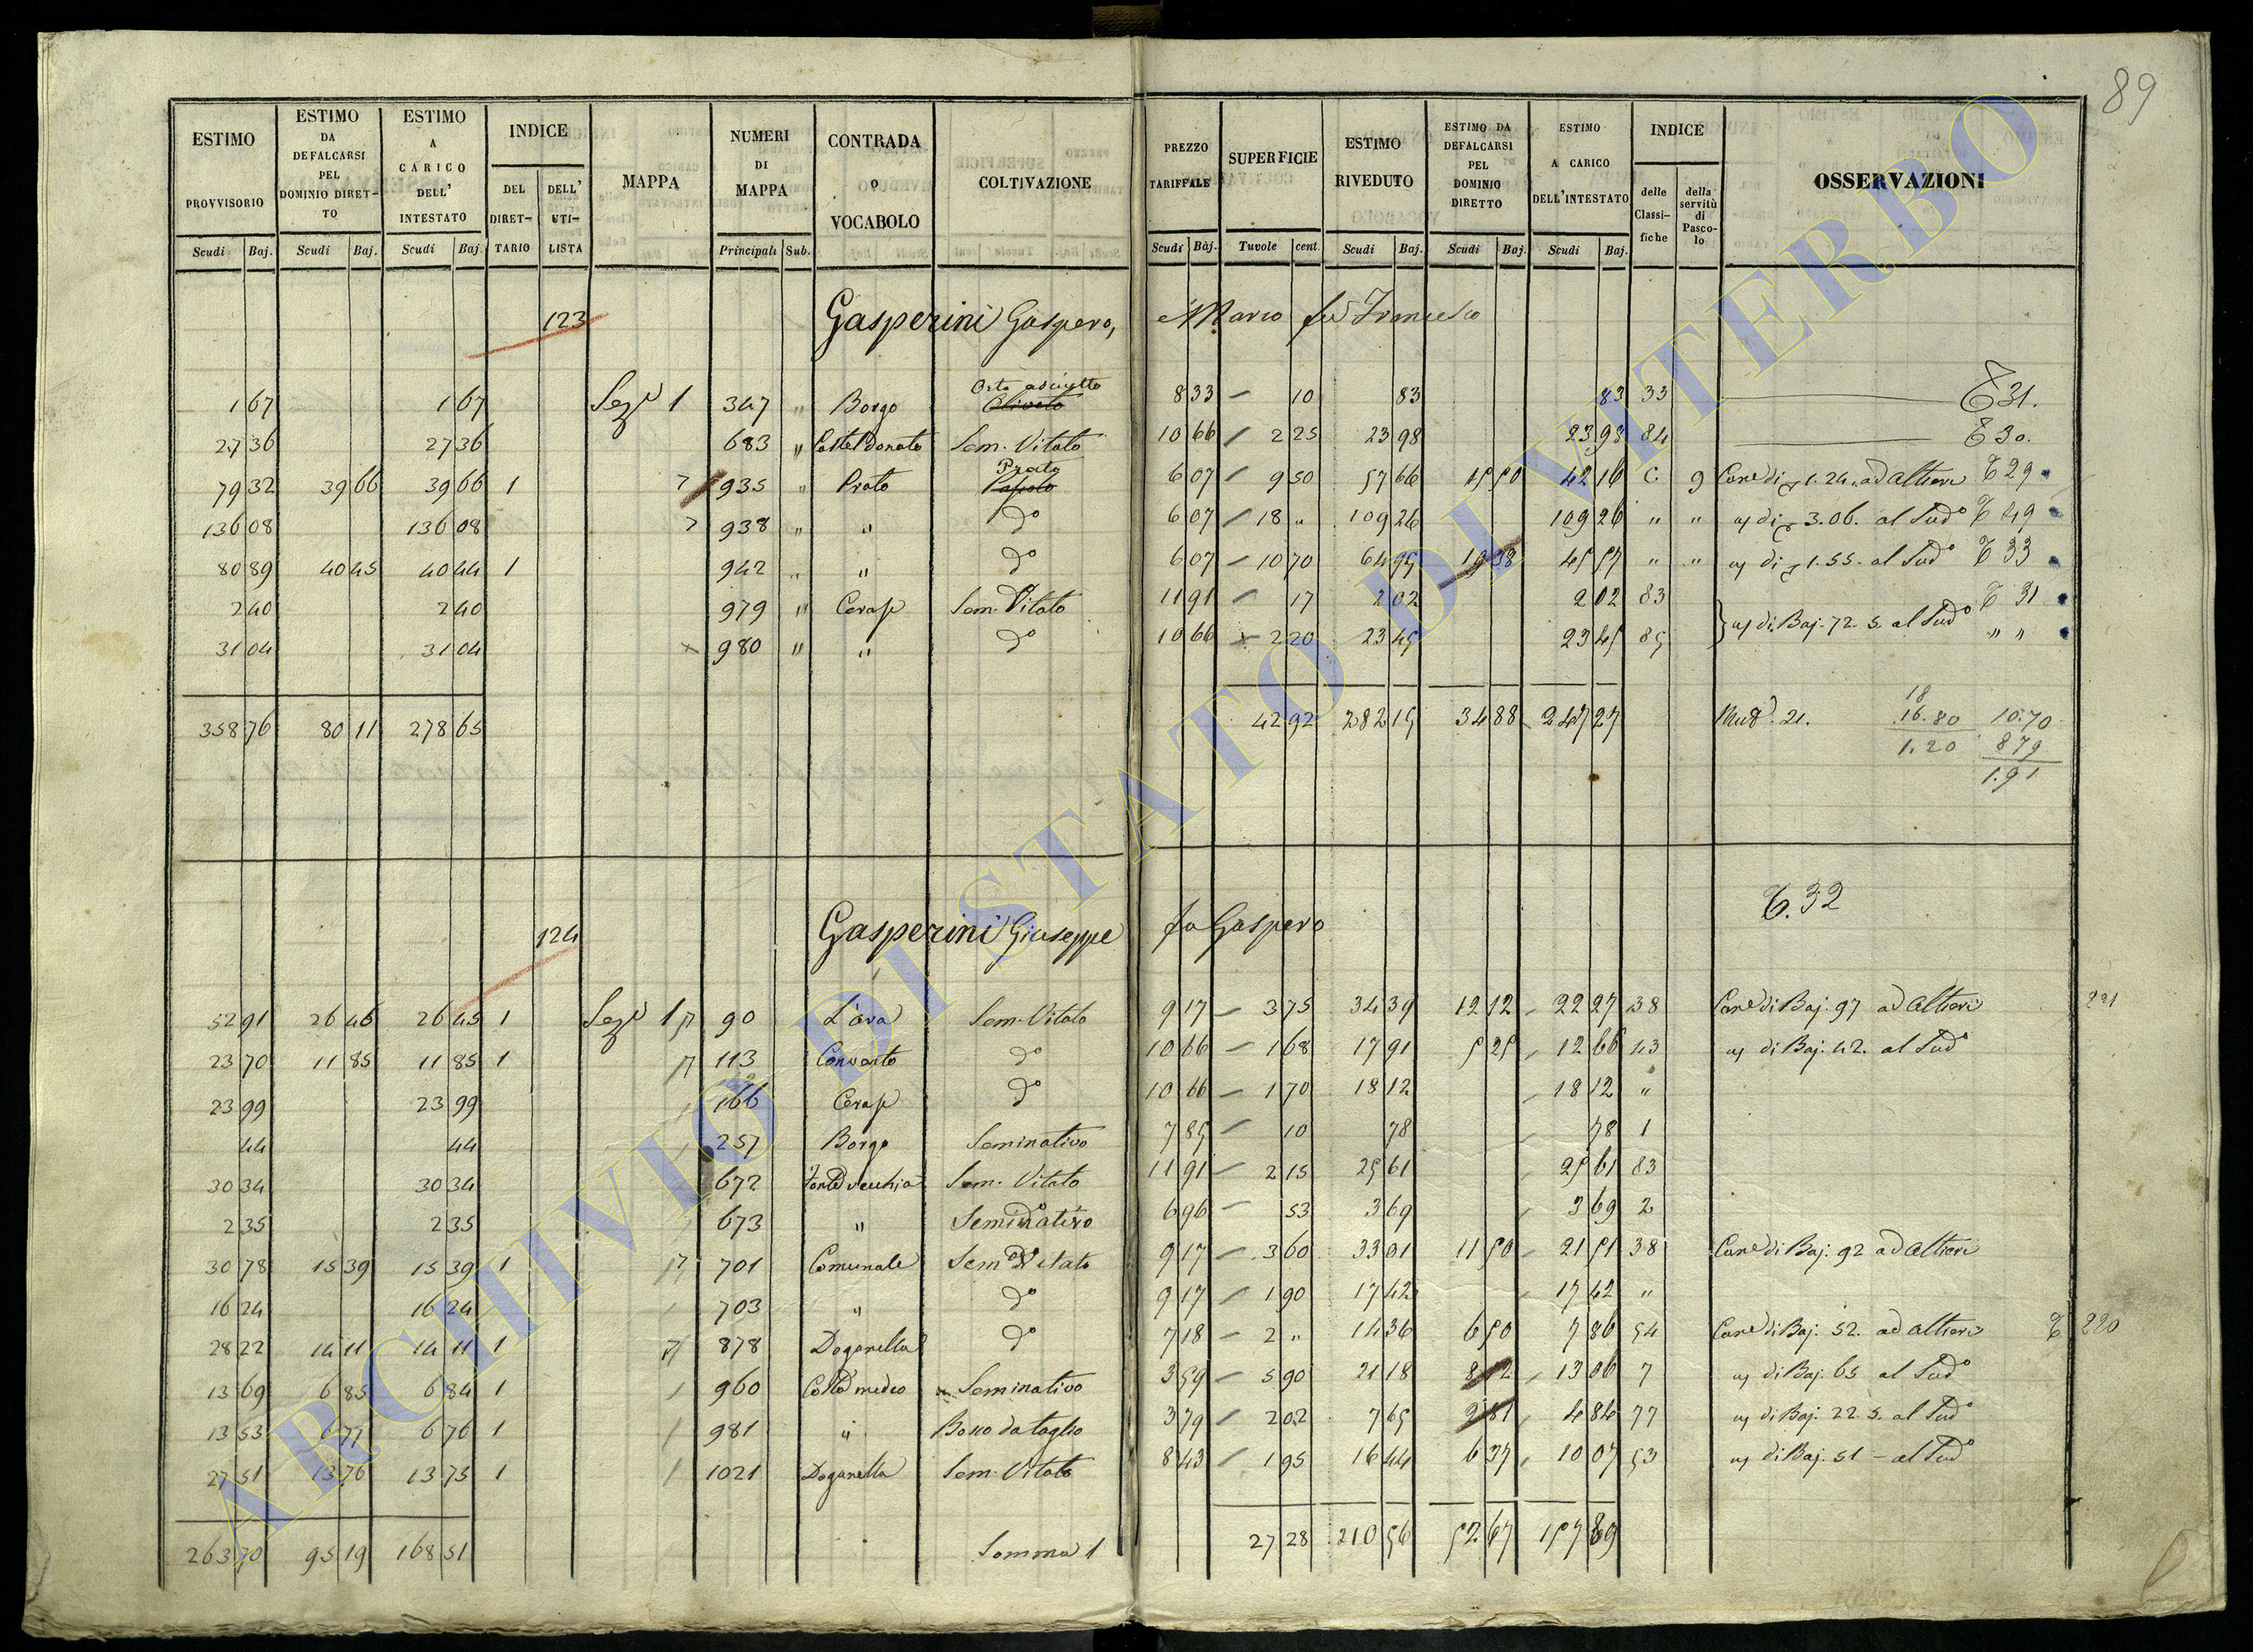 89
ESTIMO PROVVISORIO Scudi Baj. | ESTIMO DA DEFALCARSI PEL DOMINIO DIRETTO Scudi Baj. | ESTIMO A CARICO DELL' INTESTATO Scudi Baj. | INDICE DEL DIRETTARIO | DELL' UTILISTA | MAPPA | NUMERI DI MAPPA Principali Sub. | CONTRADA o VOCABOLO | COLTIVAZIONE | PREZZO TARIFFALE Scudi Baj. | SUPERFICIE Tavole cent. | ESTIMO RIVEDUTO Scudi Baj. | ESTIMO DA DEFALCARSI PEL DOMINIO DIRETTO Scudi Baj. | ESTIMO A CARICO DELL'INTESTATO Scudi Baj. | INDICE delle Classifiche | della servitù di Pascolo | OSSERVAZIONI
123 Gasperini Gaspero, Marco fu Francesco
1 67 1 67 Sez.e 1 347 " Borgo Orto asciutto Oliveto 8 33 – 10 83 83 33 T 31.
27 36 27 36 683 " Sem. Vitato 10 66 / 2 25 23 98 23 98 84 T 30.
79 32 39 66 39 66 1 7 935 " Prato Prato 6 07 – 9 50 57 66 15 50 42 16 C 9 1.24. ad Altieri T 29
136 08 136 08 7 938 " " do 6 07 / 18 " 109 26 109 26 " " 3.06. al Sudo T 49
80 89 40 45 40 44 1 942 " " do 6 07 – 10 70 64 95 19 38 45 57 " " 1.55. al Sudo T 33
2 40 2 40 979 " Cerase Sem. Vitato 11 91 – 17 2 02 2 02 83 T 31
31 04 31 04 x 980 " " do 10 66 x 2 20 23 45 23 45 85 di Baj. 72. 5. al Sudo " "
358 76 80 11 278 65 42 92 282 15 34 88 247 27 21.
18
16.80 10.70
1.20 8 79
1.91
T. 32
124 Gasperini Giuseppe fu Gaspero
52 91 26 46 26 45 1 Sez.e 1 7 90 L'ara Sem. Vitato 9 17 – 3 75 34 39 12 12 22 27 38 di Baj. 97 ad Altieri 221
23 70 11 85 11 85 1 7 113 do 10 66 – 1 68 17 91 5 25 12 66 43 di Baj. 42. al Sudo
23 99 23 99 166 Cerase do 10 66 – 1 70 18 12 18 12 "
44 44 257 Borgo Seminativo 7 85 – 10 78 78 1
30 34 30 34 672 Sem. Vitato 11 91 – 2 15 25 61 25 61 83
2 35 2 35 673 " Seminativo 6 96 – 53 3 69 3 69 2
30 78 15 39 15 39 1 7 701 Comunale Sem. Vitato 9 17 – 3 60 33 01 11 50 21 51 38 di Baj. 92 ad Altieri
16 24 16 24 703 " do 9 17 / 1 90 17 42 17 42 "
28 22 14 11 14 11 1 7 878 Doganella do 7 18 – 2 " 14 36 6 50 7 86 54 di Baj. 52. ad Altieri T 220
13 69 6 85 6 84 1 960 Seminativo 3 59 – 5 90 21 18 8 12 13 06 7 di Baj. 65 al Sudo
13 53 6 77 6 76 1 981 " Bosco da taglio 3 79 / 2 02 7 65 2 81 4 84 77 di Baj. 22. 5. al Sudo
27 51 13 76 13 75 1 1021 Doganella Sem. Vitato 8 43 / 1 95 16 44 6 37 10 07 53 di Baj. 51 – al Sudo
263 70 95 19 168 51 Somma 1 27 28 210 56 52 67 157 89
ARCHIVIO DI STATO DI VITERBO